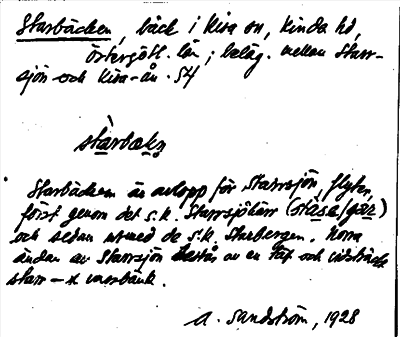 Starbäcken, bäck i Kisa sn, Kinda hd,
Östergötl. län; beläg. mellan Starr-
sjön och Kisa-ån. 54
stárbækn
Starbäcken är avlopp för Starrsjön, flyter,
först genom det s.k. Starrsjökärr
och sedan utmed de s.k. Starbergen. Norra
ändan av Starrsjön består av en tät och vidsträckt
starr- o. vassbänk.
A. Sandström, 1928